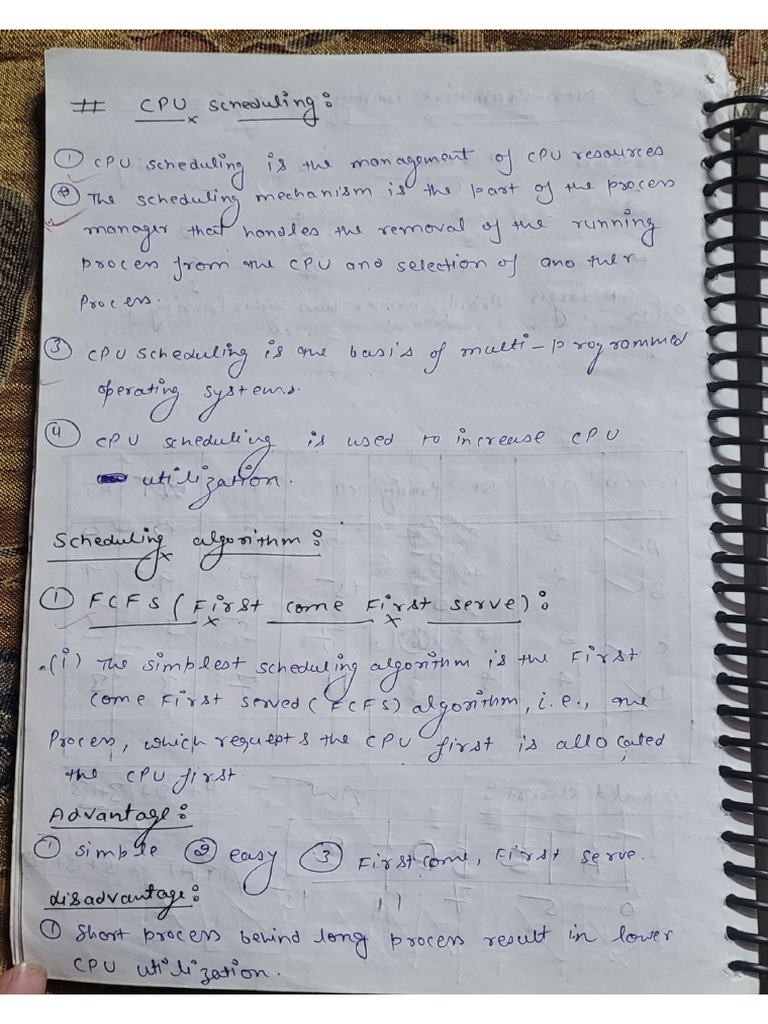 # CPU Scheduling :
① CPU scheduling is the management of CPU resources
② The scheduling mechanism is the part of the process
manager that handles the removal of the running
process from the CPU and selection of another
process.
③ CPU scheduling is the basis of multi-programmed
operating systems.
④ CPU scheduling is used to increase CPU
utilization.
Scheduling algorithm :
① FCFS (First come First serve) :
(i) The simplest scheduling algorithm is the First
come First served (FCFS) algorithm, i.e., the
Process, which requests the CPU first is allocated
the CPU first
Advantage :
① simple ② easy ③ First come, First serve.
disadvantage :
① Short process behind long process result in lower
CPU utilization.